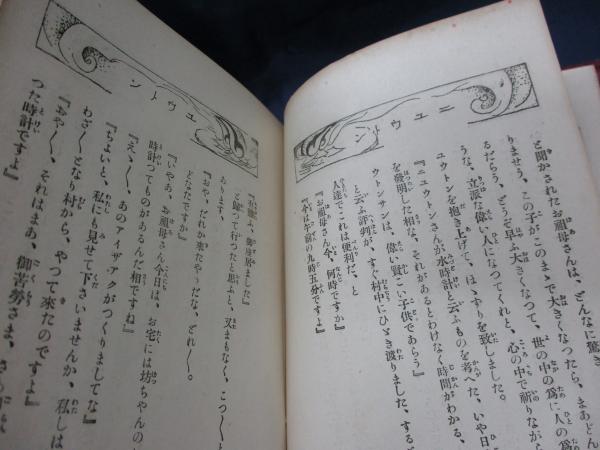 ニユウトン
と聞かされたお祖母さんは、どんなに驚き
りませう、この子がこのまゝで大きくなつたら、まあどん
るだらう、どうぞ早ふ大きくなつて、世の中の為に人の為
うな、立派な偉い人になつてくれと、心の中で祈りながら
ユウトンを抱き上げて、ほゝずりを致しました。
『ニユウトンさんが水時計と云ふものを考へた、いや日
を發明した相な、それがあるとわけなく時間がわかる、
ウトンサンは、偉い賢こい子供であらう』
と云ふ評判が、すぐ村中にひゞき渡りました、するど
人達でこれは便利だ、と
『お祖母さん今、何時ですか』
『今は午前の九時五分ですよ』
ユウトン
有難ふ、御座居ました』
と歸つて行つたと思ふと、又まもなく、こつ〳〵と
あります、
『おや、だれか來たやうだな、どれ〳〵。
どなたですか』
『いやあ、お祖母さん今日は、お宅には坊ちやんの
時計つてものがあるんだ相ですね』
『えゝ、あのアイザアクがつくりましてな』
『ちよいと、私にも見せて下さいませんか、私しは
わざ〳〵となり村から、やつて來たのですよ』
『おや〳〵、それはまあ、御苦勞さま、さ
つた時計ですよ』